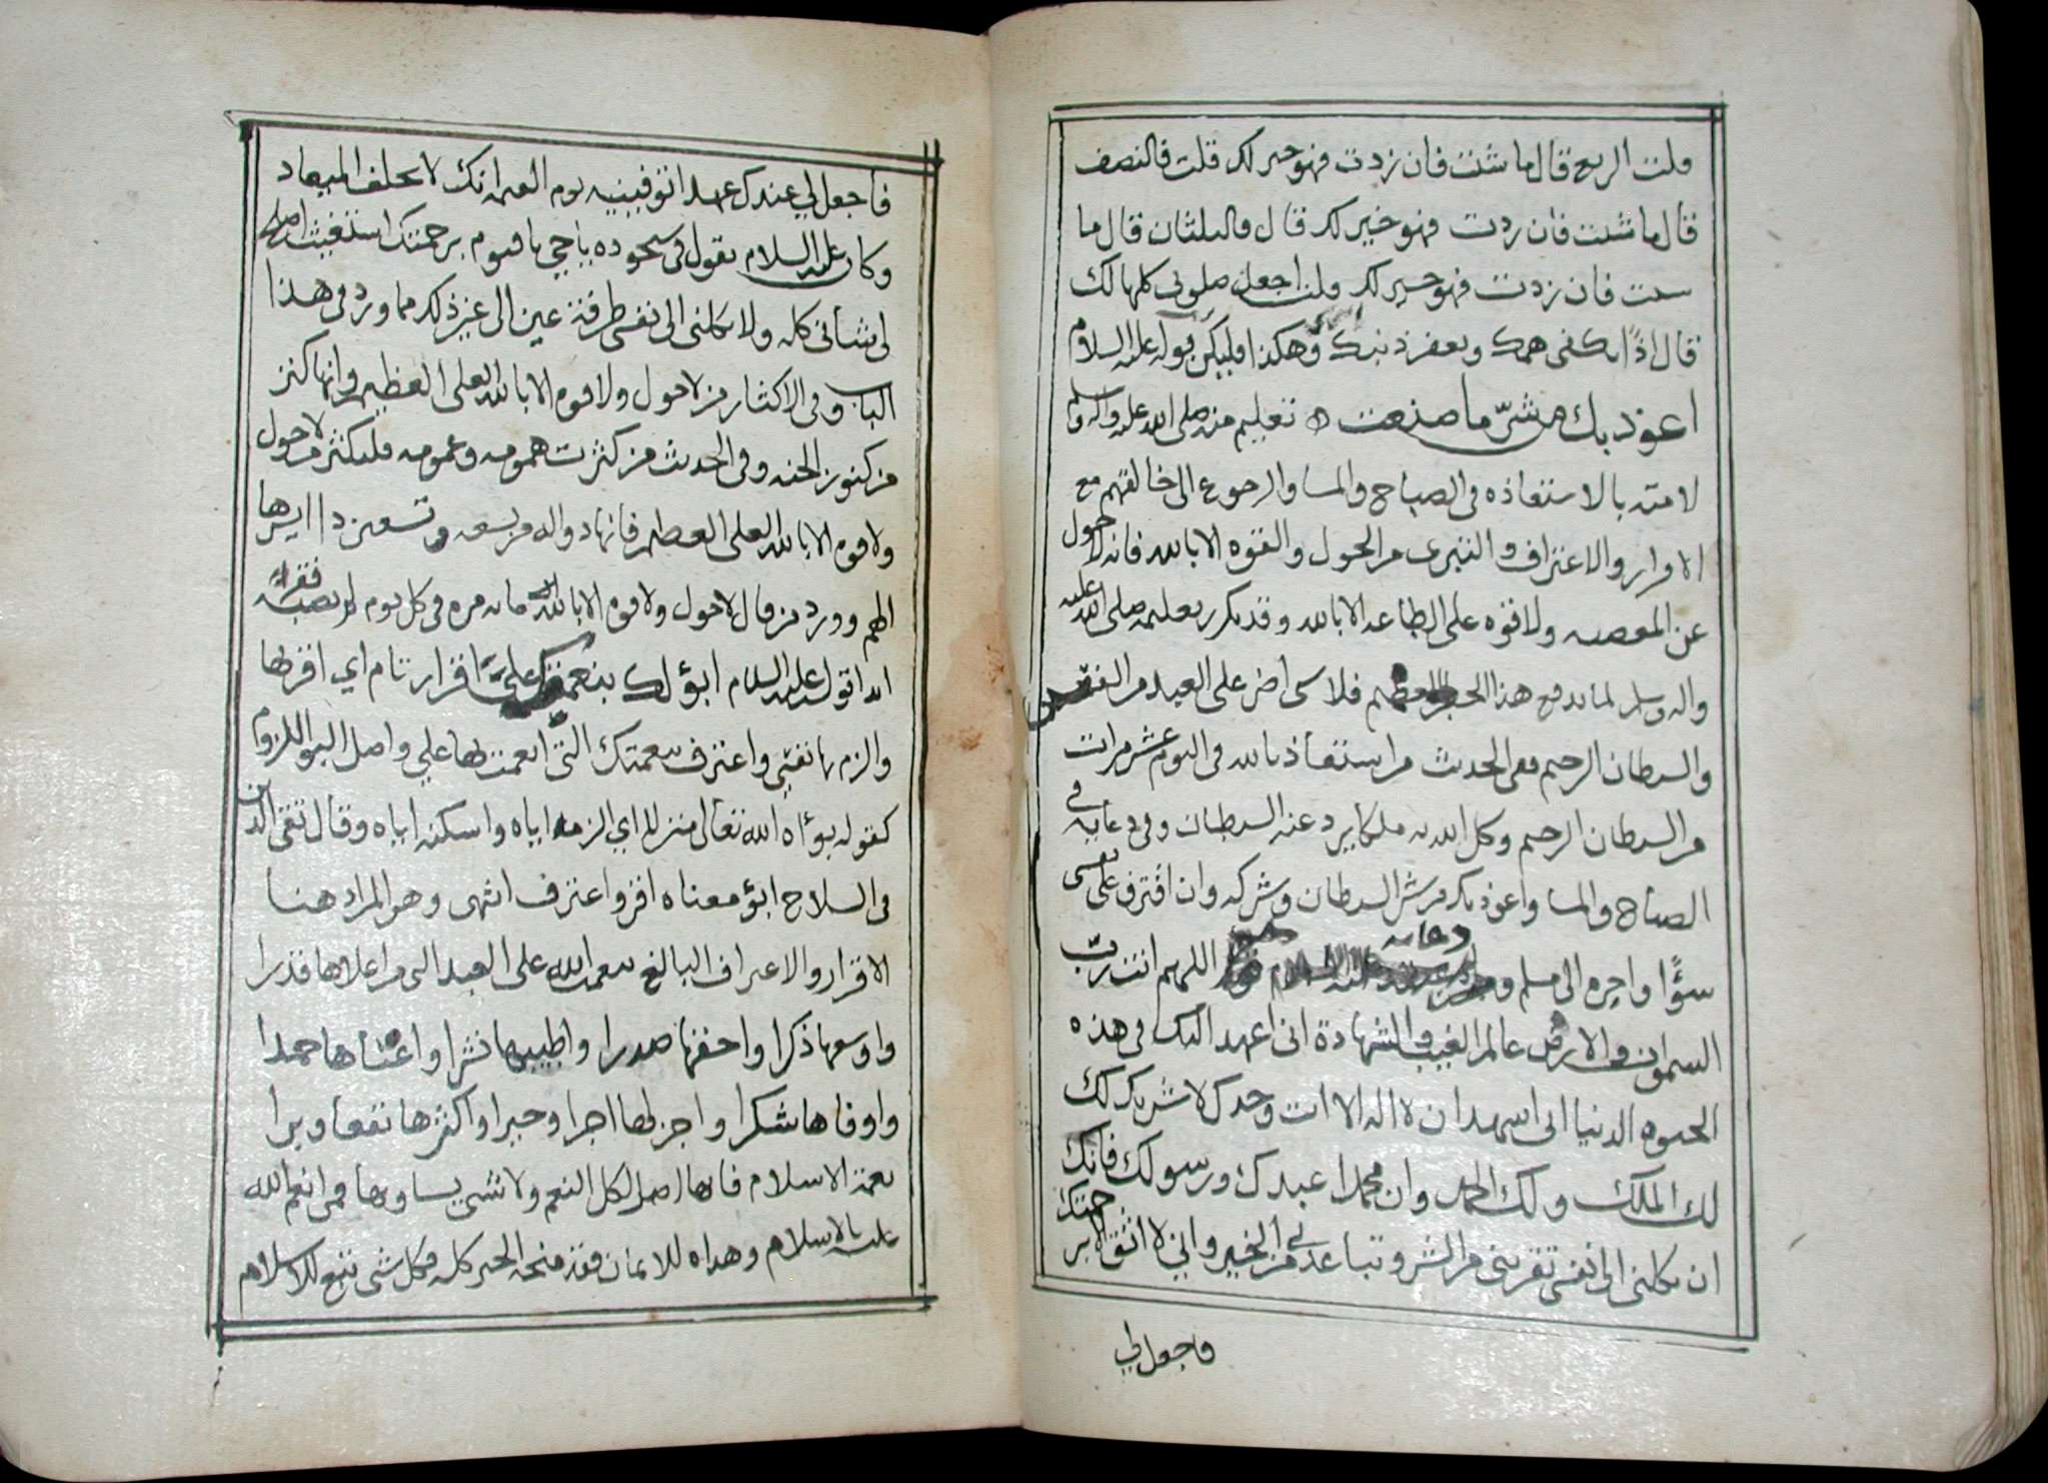 قلت الربع قال ما شئت فان زدت فهو خير لك قلت فالنصف
قال ما شئت فان زدت فهو خير لك قال فالثلثان قال ما
شئت فان زدت فهو خير لك قلت اجعل صلوتي كلها لك
قال اذًا يكفى همك ويغفر ذنبك وهكذا فليكن قوله عليه السلام
اعوذ بك من شرّ ما صنعت تعليم منه صلى الله عليه واله وسلم
لامته بالاستعاذه في الصباح والمسا والرجوع الى خالقهم مع
الاقرار والاعتراف والتبرى من الحول والقوه الا بالله فانه لا حول
عن المعصيه ولا قوه على الطاعه الا بالله وقد تكرر تعليمه صلى الله عليه
واله وسلم لما يدفع هذا العظيم فلا شى اضر على العبد من النفس
والشيطان الرجيم ففي الحديث من استعاذ بالله في اليوم عشر مرات
من الشيطان الرجيم وكل الله به ملكا يرد عنه الشيطان وفي دعايه في
الصباح والمسا واعوذ بك من شر الشيطان وشركه وان اقترف على نفسى
سؤًا او اجره الى مسلم و دعايه اللهم انت ربّ
السموات والارض عالم الغيب والشهادة انى اعهد اليك في هذه
الحيوه الدنيا انى اشهد ان لا اله الا انت وحدك لا شريك لك
لك الملك ولك الحمد وان محمدا عبدك ورسولك فانك
ان تكلنى الى نفسى تقربنى من الشر وتباعدني من الخير واني لا اثق الا برحمتك
فاجعل لي
فاجعل لي عندك عهدا توفينيه يوم القيمه انك لا تخلف الميعاد
وكان عليه السلام يقول في سجوده يا حي يا قيوم برحمتك استغيث اصلح
لى شانى كله ولا تكلنى الى نفسى طرفة عين الى غير ذلك مما ورد فى هذا
الباب وفي الاكثار من لا حول ولا قوه الا بالله العلى العظيم وانها كنز
من كنوز الجنه وفي الحديث من كثرت همومه وغمومه فليكثر من لا حول
ولا قوه الا بالله العلى العظيم فانها دوا من تسعه وتسعين دا ايسرها
الهم وورد من قال لا حول ولا قوه الا بالله مايه مره في كل يوم لم يصبه فقر
ابدا قوله عليه السلام ابؤ لك بنعمتك عليّ اقرار تام اي اقر بها
والزم بها نفسي واعترف بنعمتك التى انعمت بها علي واصل البو اللزوم
كقوله بوأه الله تعالى منزلا اي الزمه اياه واسكنه اياه وقال تقى الدين
فى السلاح ابؤ معناه اقر واعترف انتهى وهو المراد هنا
الاقرار والاعتراف البالغ بنعم الله على العبد التى من اعلاها قدرا
واوسعها ذكرا واحفها صدرا واطيبها نشرا واغناها حمدا
واوفاها شكرا واجزلها اجرا وخيرا واكثرها نفعا وبرا
نعمة الاسلام فانها اصل لكل النعم ولا شي يساويها فمن انعم الله
عليه بالاسلام وهداه للايمان فقد منحه الخير كله فكل شى تبع للاسلام